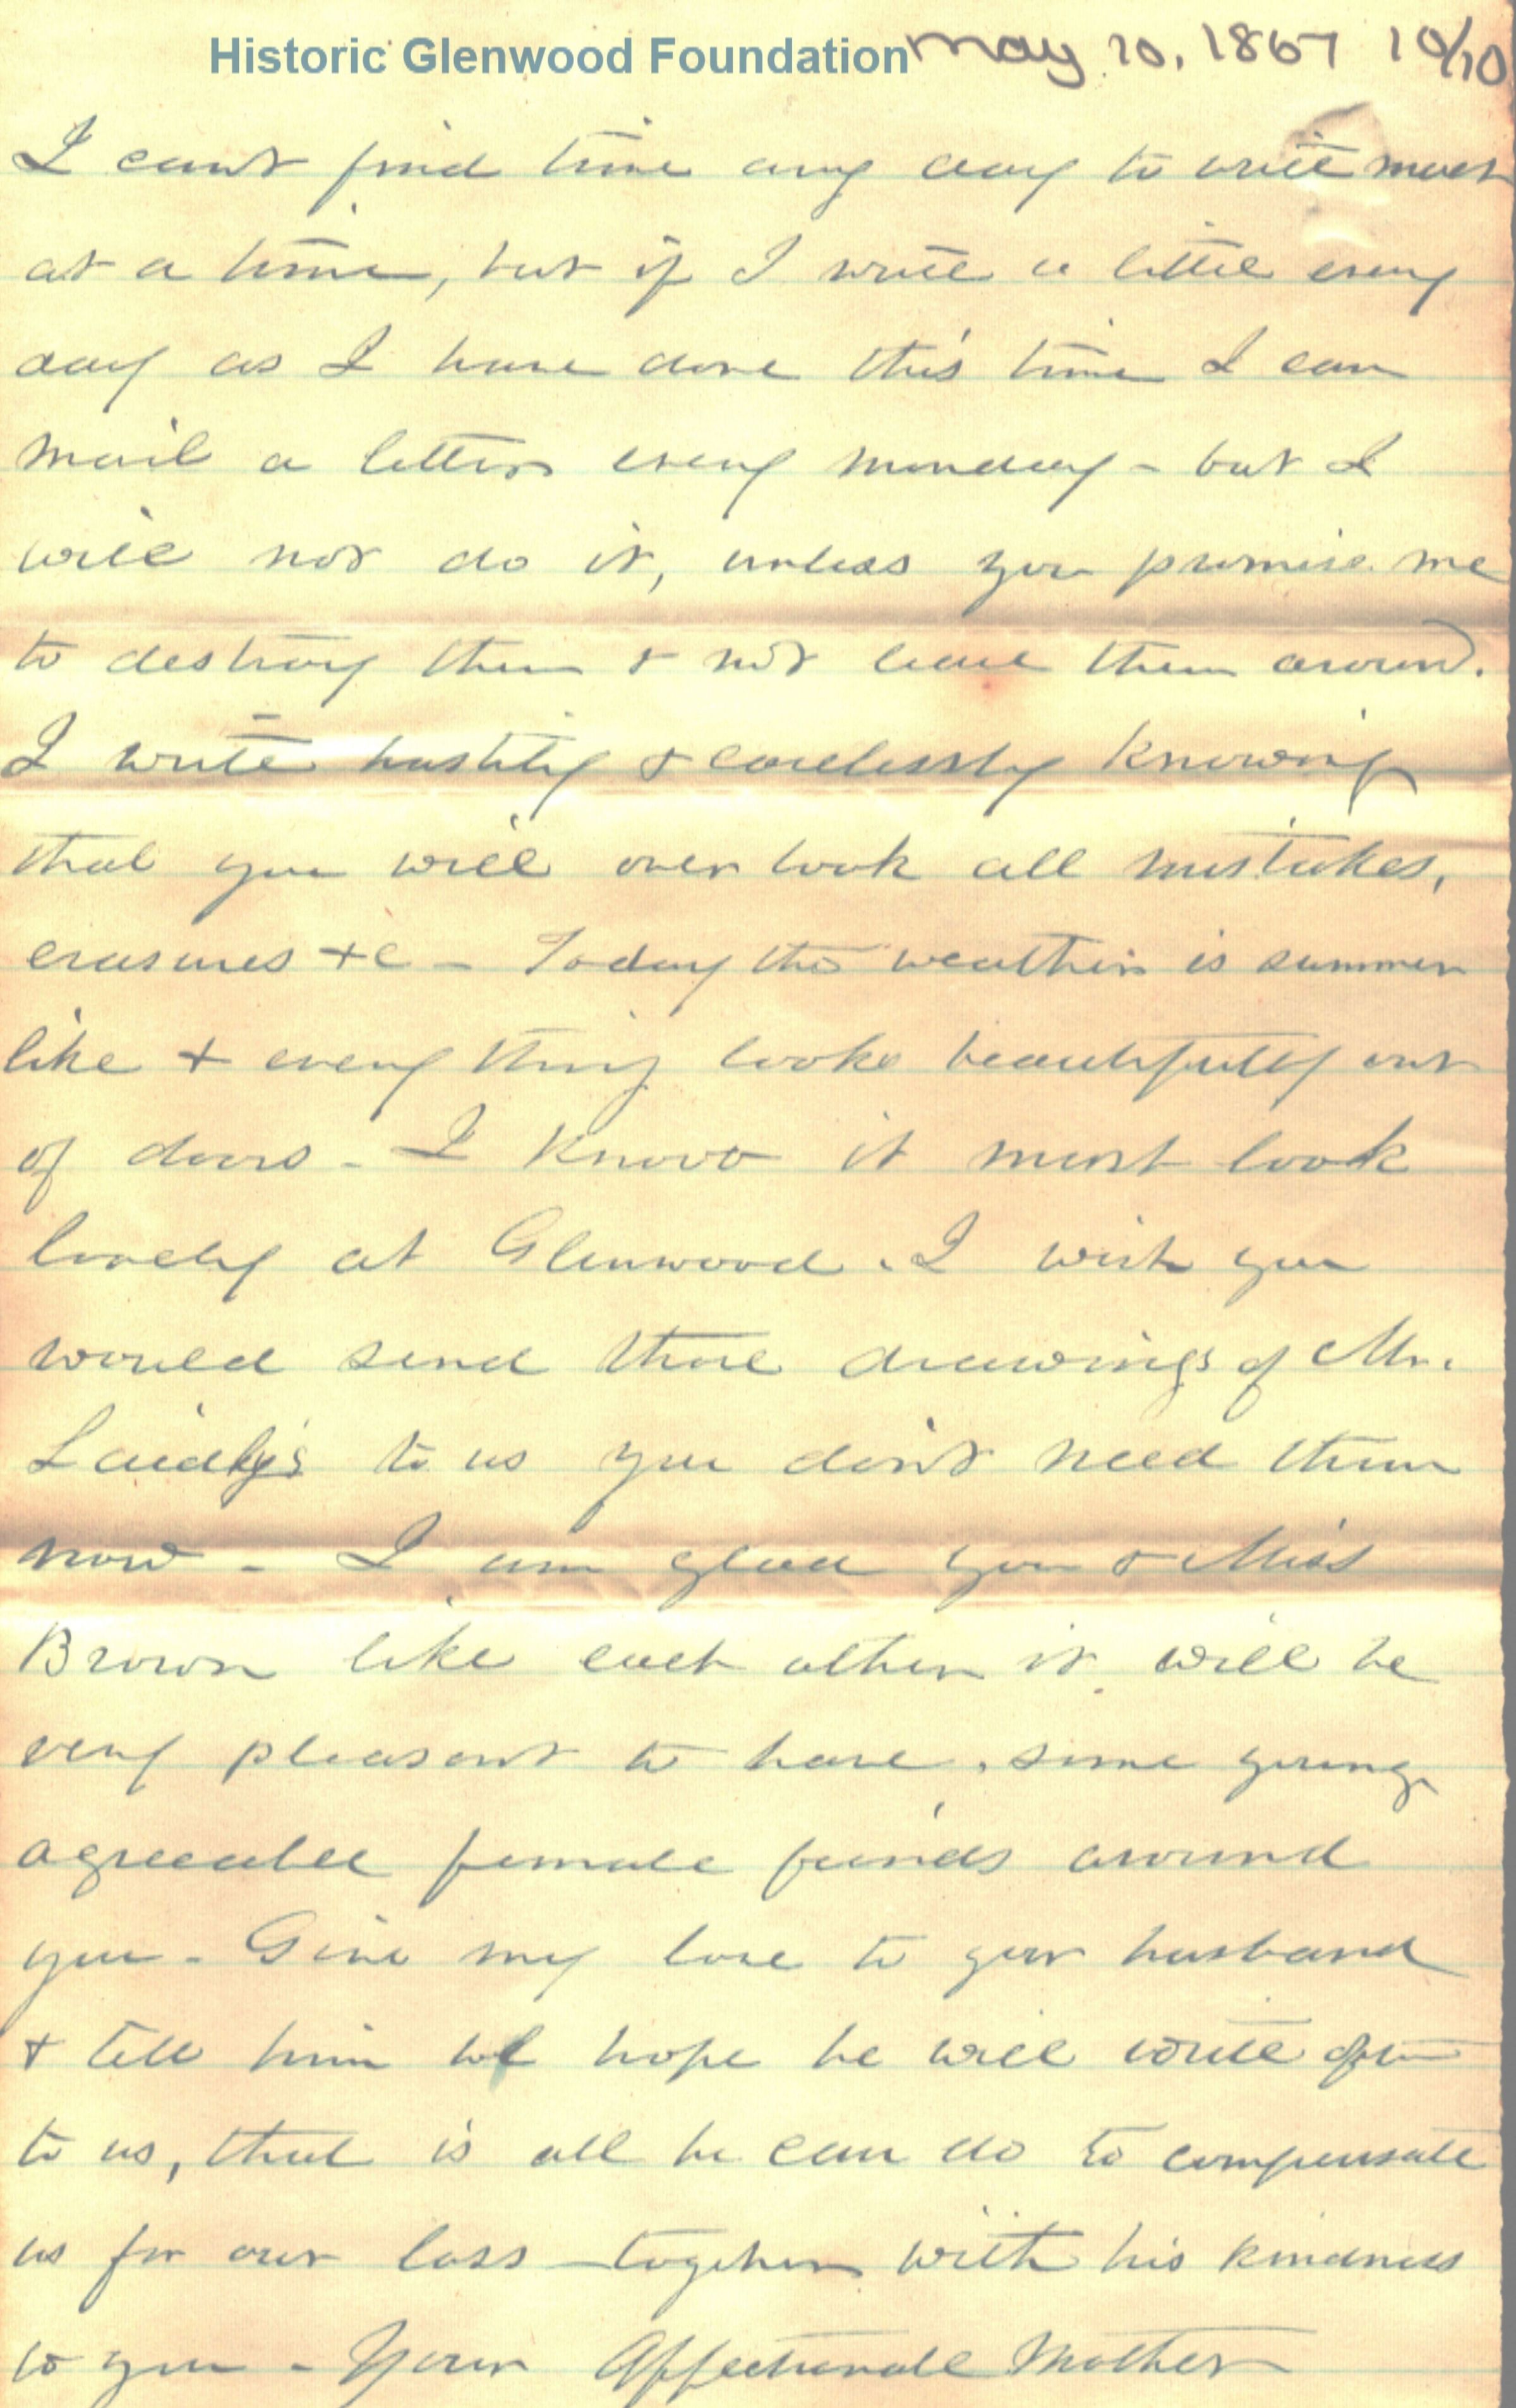 Historic Glenwood Foundation May 20, 1867 10/10
I can't find time any day to write much
at a time, but if I write a little every
day as I have done this time I can
mail a letter every monday - but I
will not do it, unless you promise me
to destroy them & not leave them around.
I write hastily & carelessly knowing
that you will over look all mistakes,
erasures +c - Today the weather is summer
like + every thing looks beautifully out
of doors - I know it must look
lovely at Glenwood. I wish you
would send those drawings of Mr.
Laidly's to us you don't need them
now - I am glad you & Miss
Brown like each other it will be
very pleasant to have some young
agreeable female friends around
you - Give my love to your husband
+ tell him we hope he will write often
to us, that is all he can do to compensate
us for our loss - together with his kindness
to you - Your Affectionate Mother